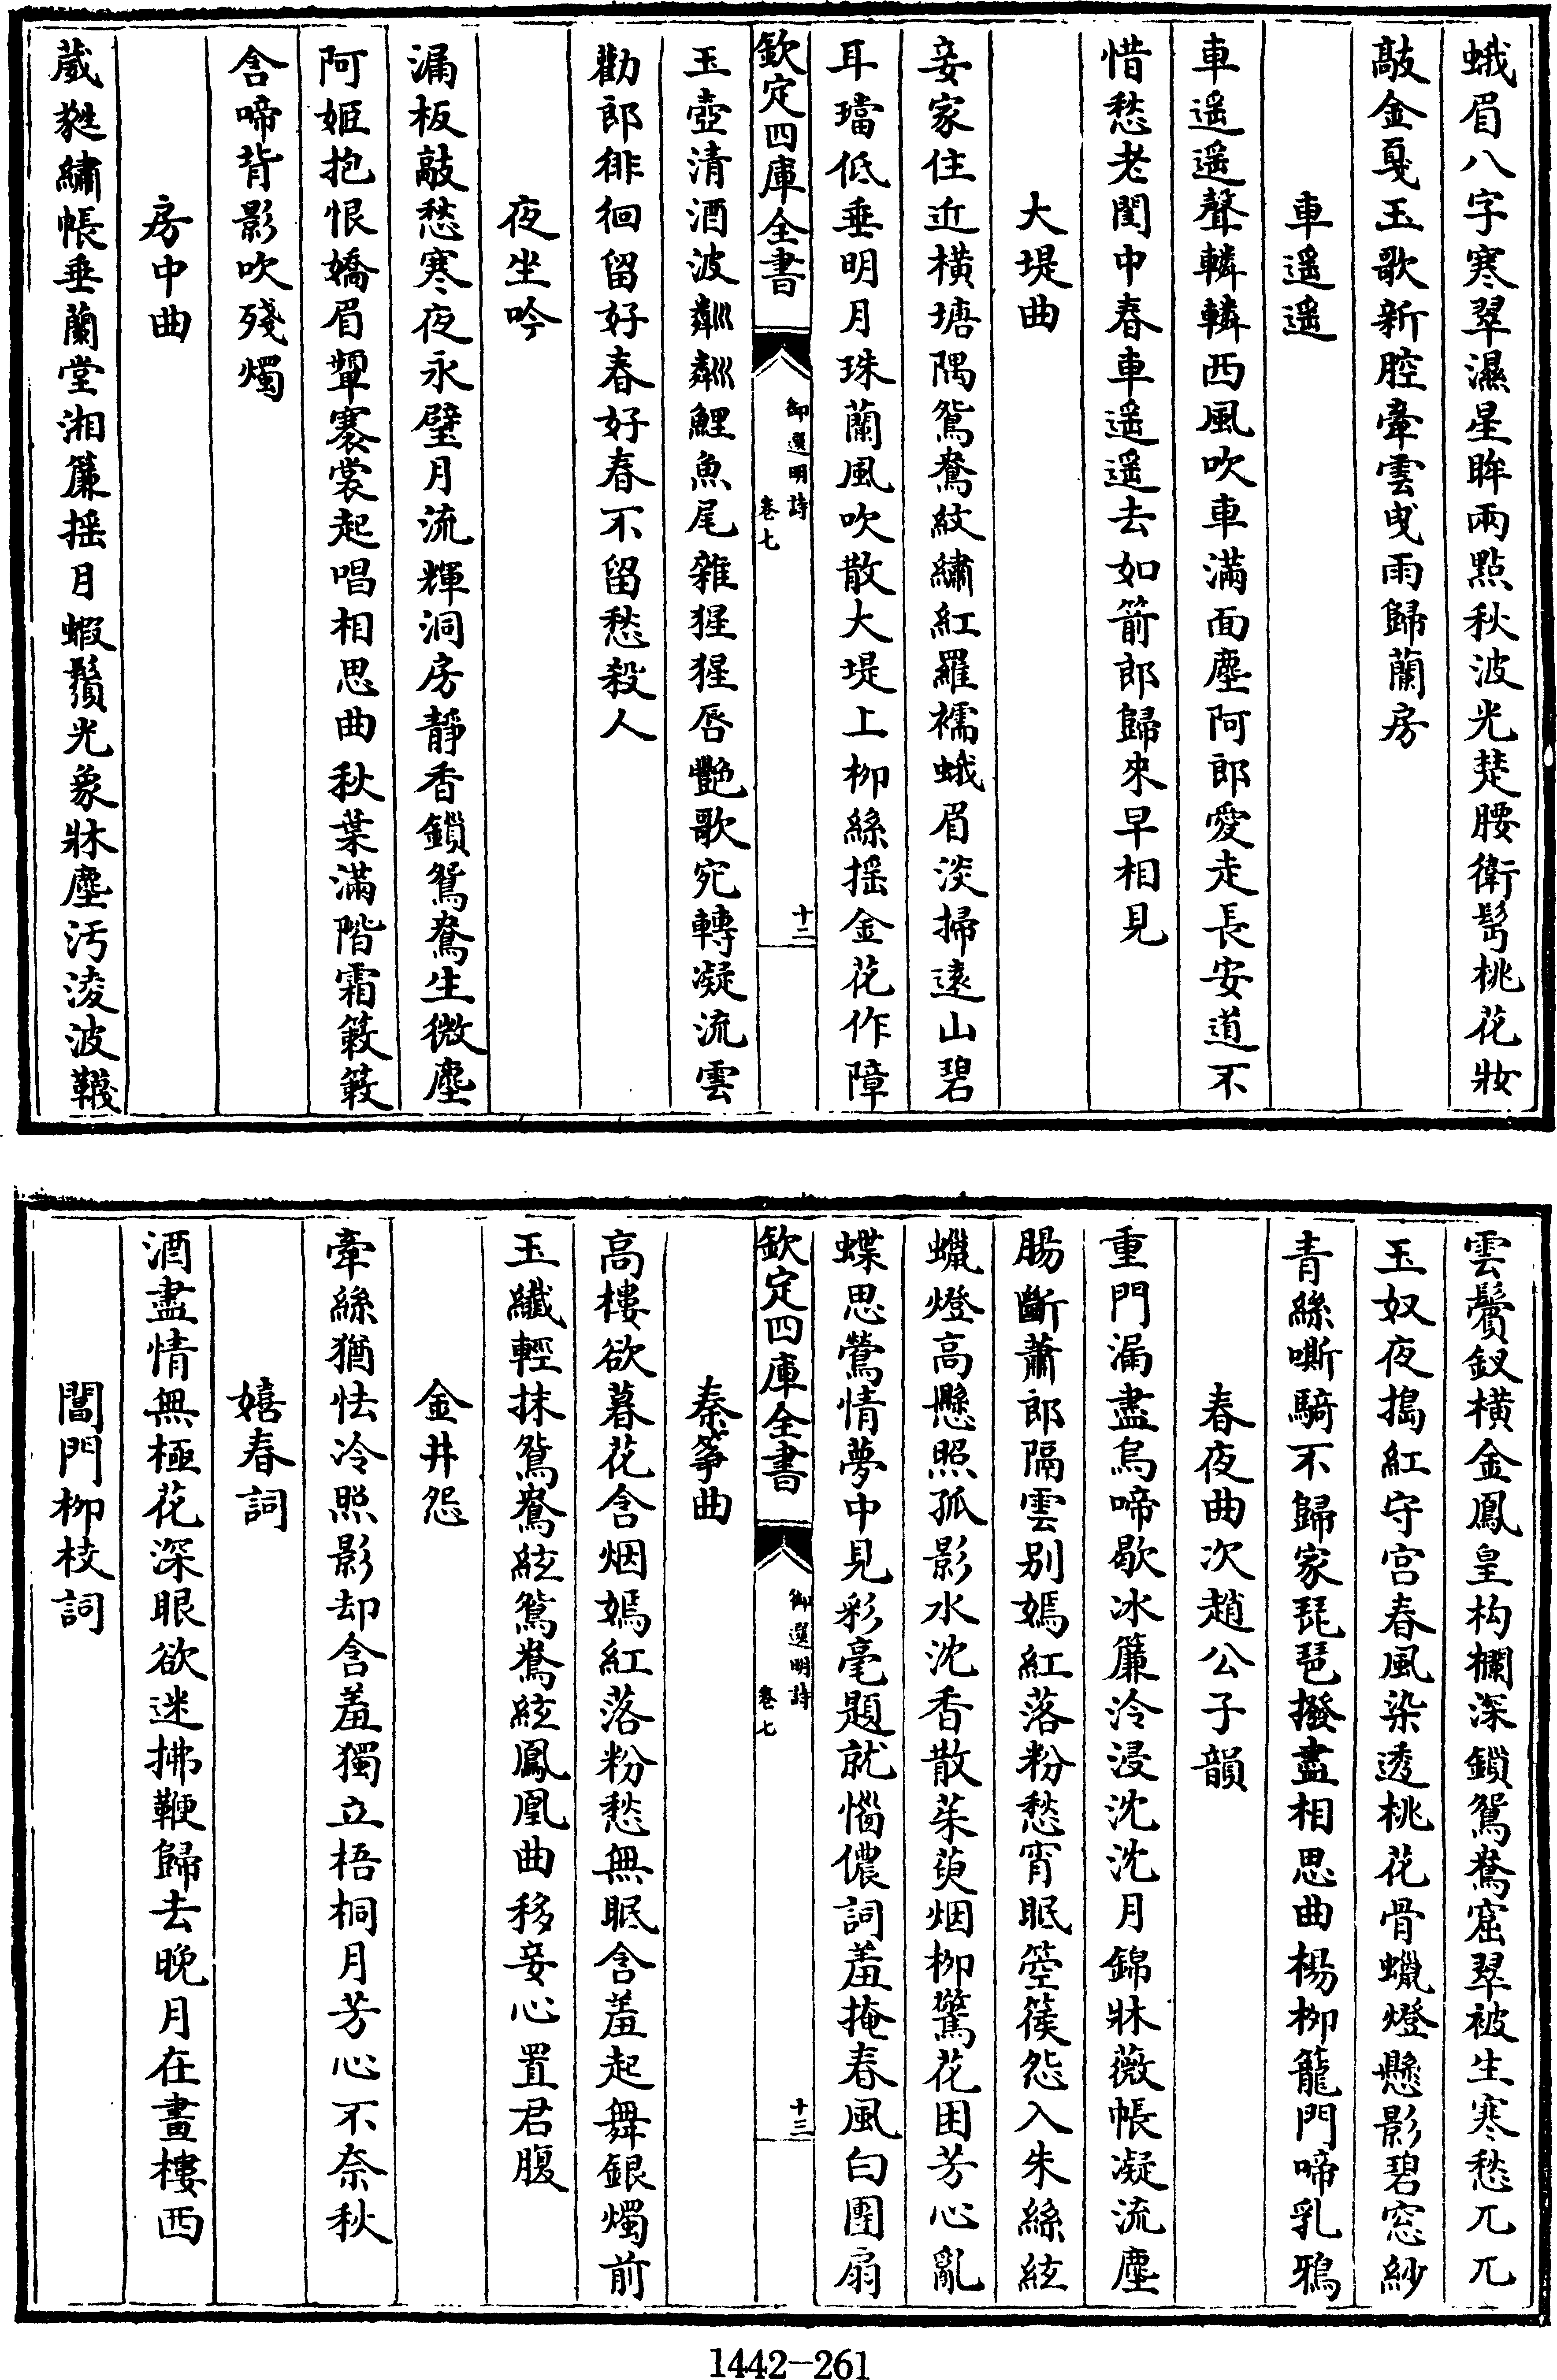 蛾眉八字寒翠濕星眸兩點秋波光楚腰衛髩桃花妝
敲金戛玉歌新腔牽雲曵雨歸蘭房
車遥遥
車遥遥聲轔轔西風吹車滿面塵阿郎愛走長安道不
惜愁老閨中春車遥遥去如箭郎歸來早相見
大堤曲
妾家住近橫塘隅鴛鴦紋繡紅羅襦蛾眉淡掃遠山碧
耳璫低垂明月珠蘭風吹散大堤上柳絲揺金花作障
欽定四庫全書
御選明詩
卷七
十二
玉壺清酒波粼粼鯉魚尾雜猩猩唇艷歌宛轉凝流雲
勸郎徘徊留好春好春不留愁殺人
夜坐吟
漏板敲愁寒夜永璧月流輝洞房靜香鎖鴛鴦生微塵
阿姬抱恨嬌眉顰褰裳起唱相思曲秋葉滿階霜簌簌
含啼背影吹殘燭
房中曲
葳甤繡帳垂蘭堂湘簾揺月蝦鬚光象牀塵汚淩波韈
雲鬢釵橫金鳳皇枸欄深鎖鴛鴦窟翠被生寒愁兀兀
玉奴夜搗紅守宫春風染透桃花骨蠟燈懸影碧窓紗
青絲嘶騎不歸家琵琶撥盡相思曲楊柳籠門啼乳鴉
春夜曲次趙公子韻
重門漏盡烏啼歇冰簾泠浸沈沈月錦牀薇帳凝流塵
腸斷蕭郎隔雲别嫣紅落粉愁宵眠箜篌怨入朱絲絃
蠟燈高懸照孤影水沈香散茱萸烟柳驚花困芳心亂
蝶思鶯情夢中見彩毫題就惱儂詞羞掩春風白團扇
欽定四庫全書
御選明詩
卷七
十三
秦筝曲
高樓欲暮花含烟嫣紅落粉愁無眠含羞起舞銀燭前
玉纖輕抹鴛鴦絃鴛鴦絃鳳凰曲移妾心置君腹
金井怨
牽絲猶怯冷照影却含羞獨立梧桐月芳心不奈秋
嬉春詞
酒盡情無極花深眼欲迷拂鞭歸去晚月在畫樓西
閶門柳枝詞
1442-261